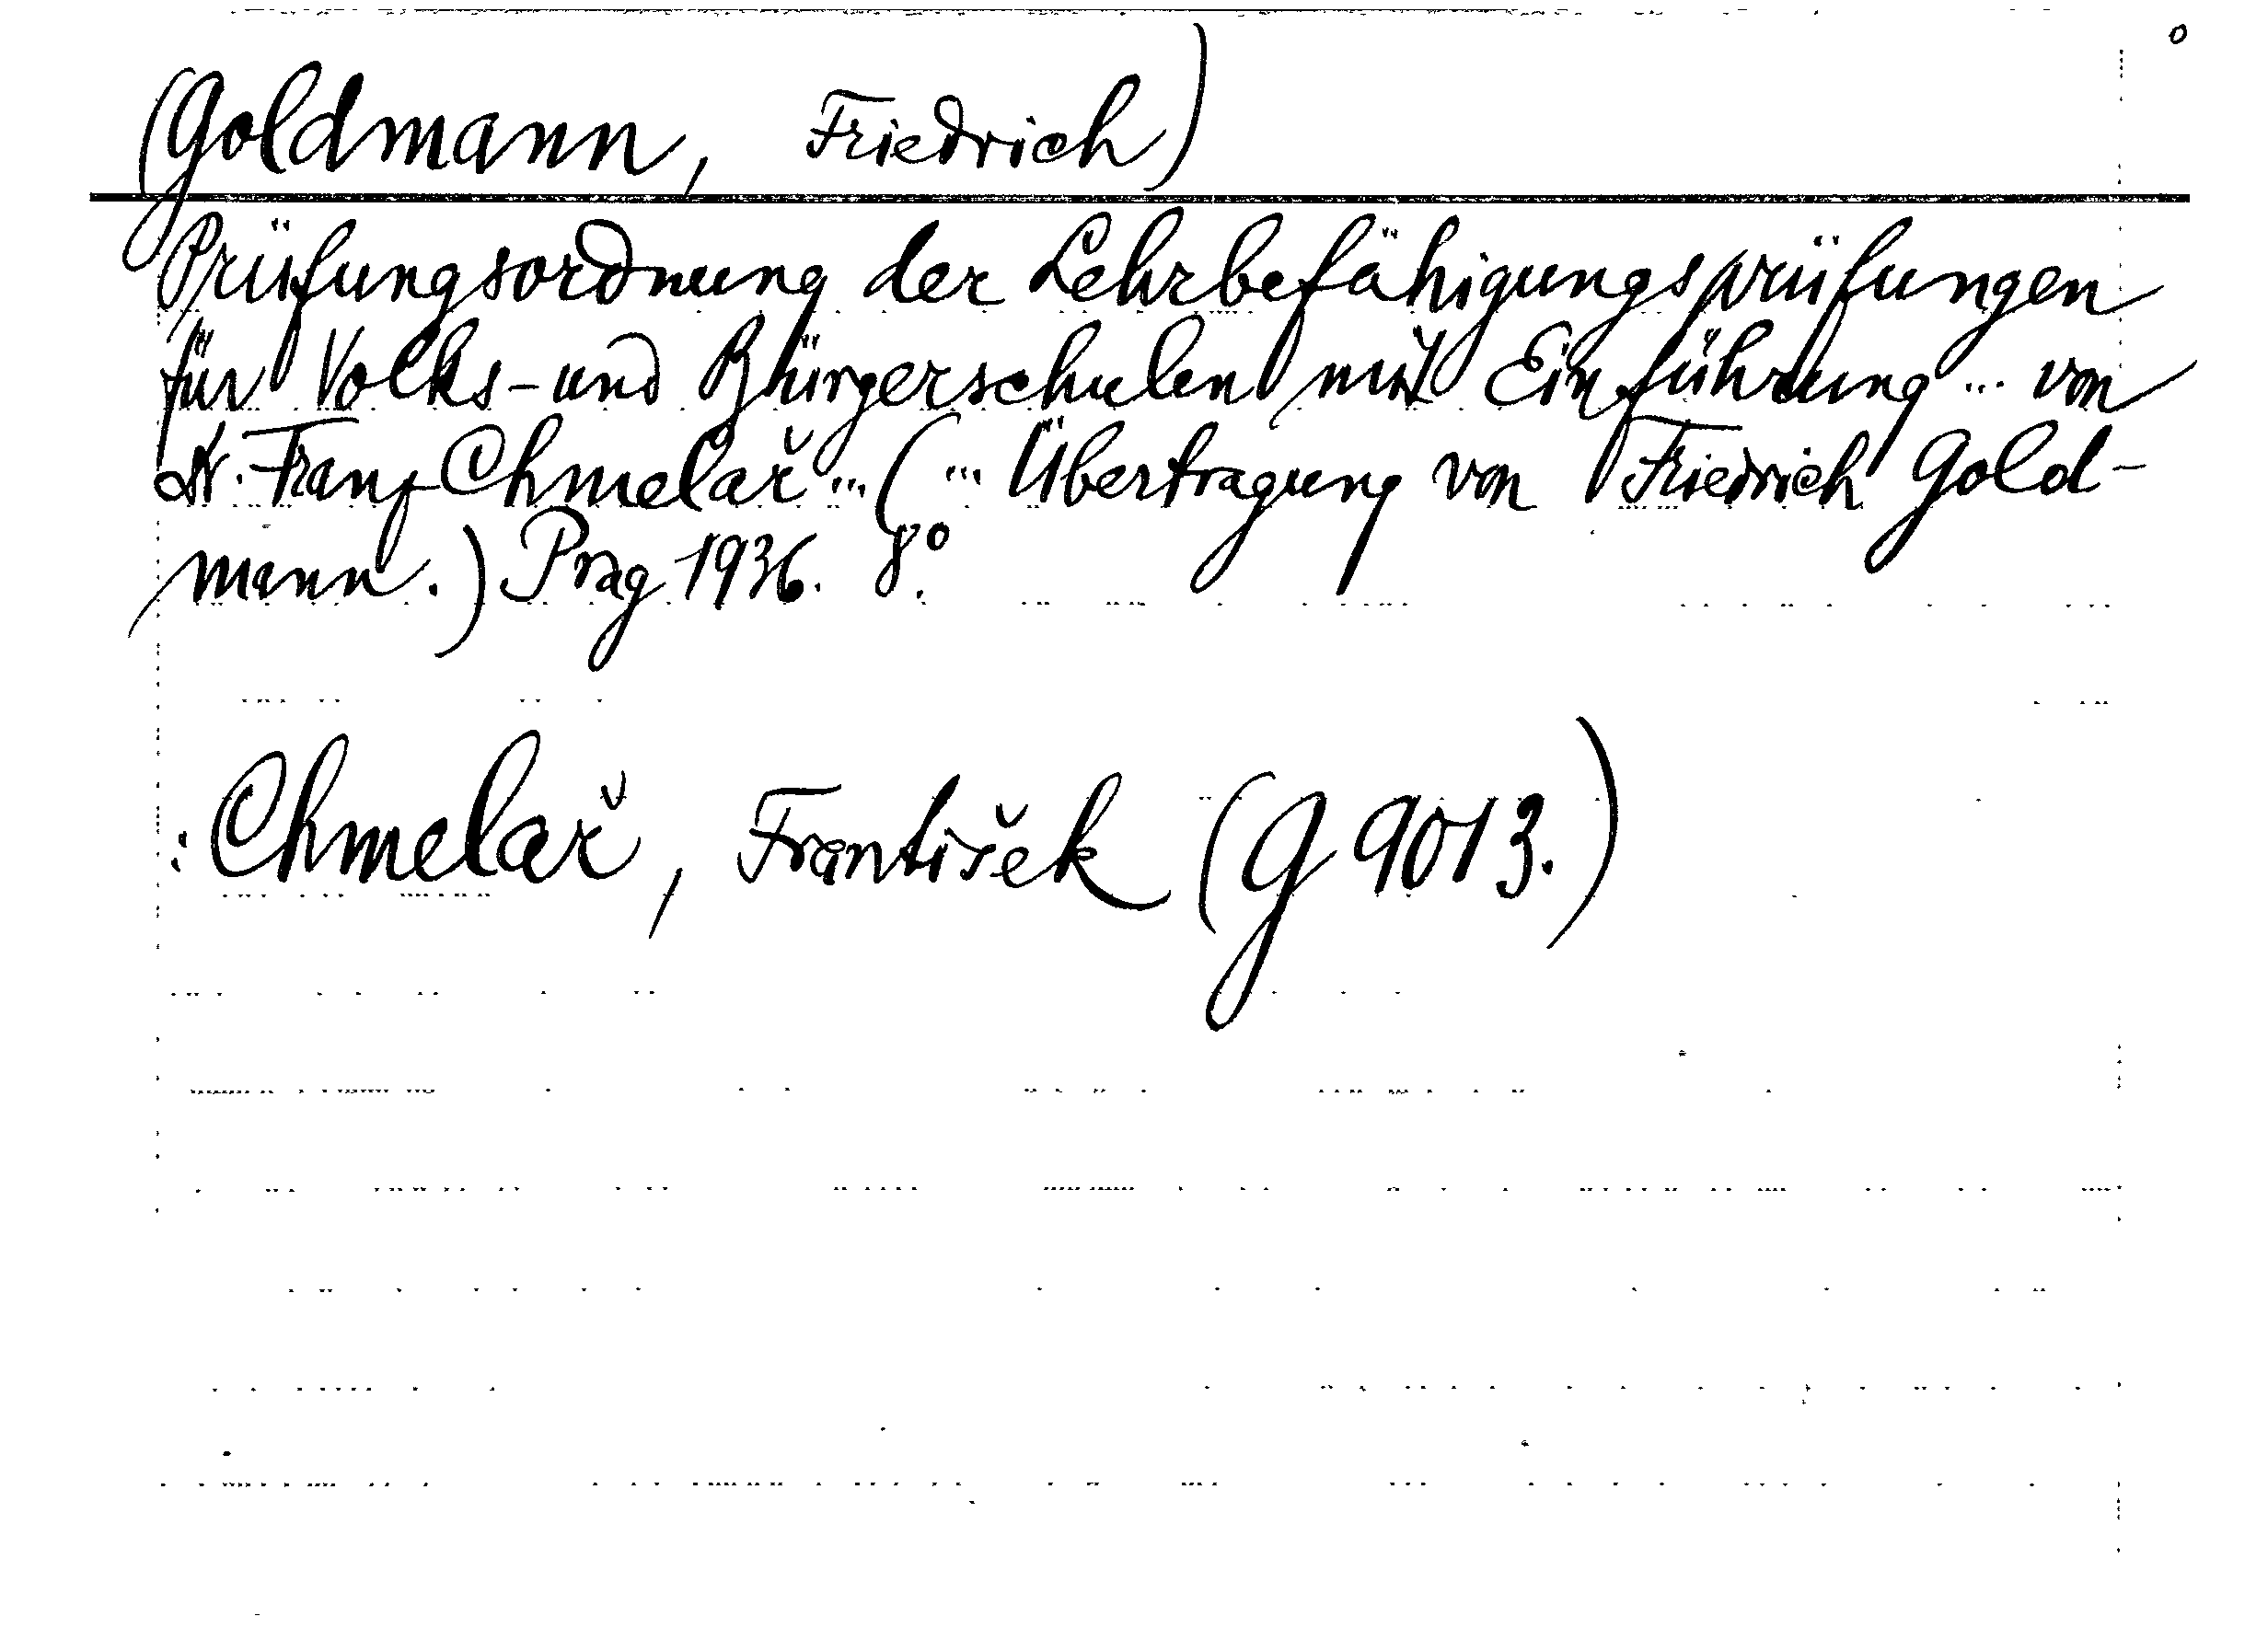 (Goldmann, Friedrich)
Prüfungsordnung der Lehrbefähigungsprüfungen
für Volks- und Bürgerschulen mit Einführung ... von
Dr. Franz Chmelař ... ( ... Übertragung von Friedrich Gold-
mann.) Prag 1936. 8°.
: Chmelař, František (G 9013.)